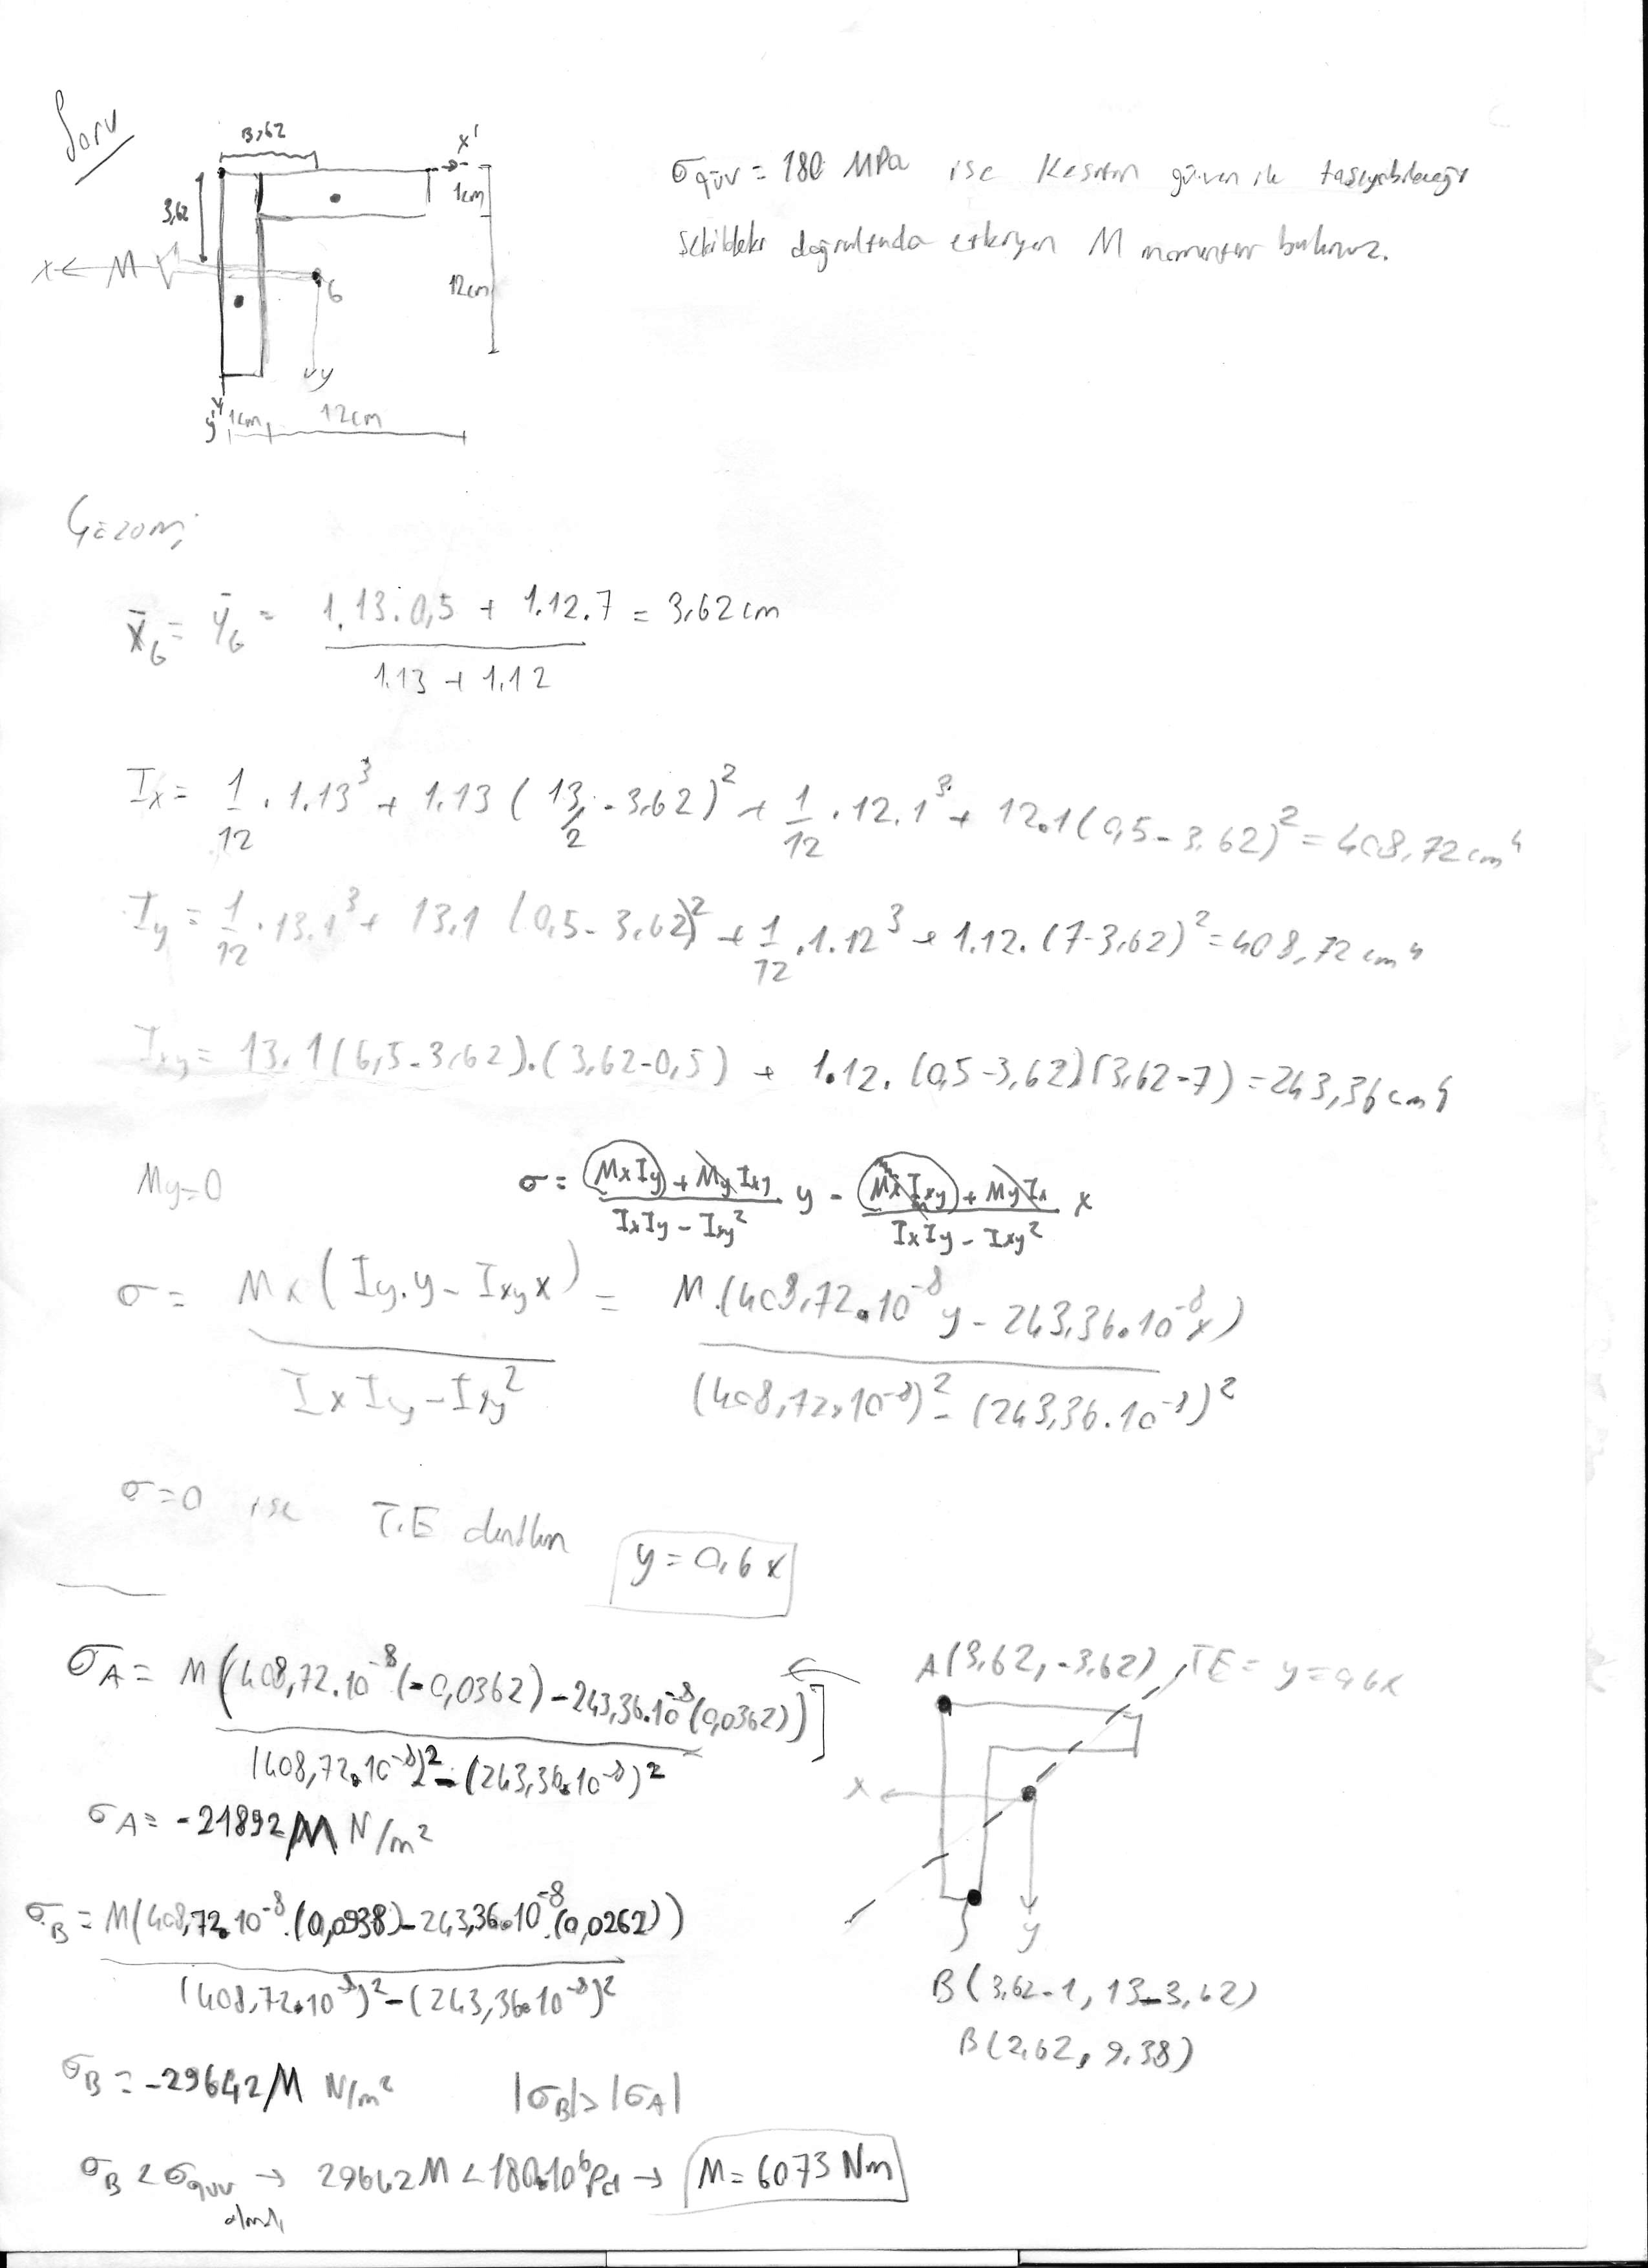 Soru
3,62
x'
1cm
3,62
x ← M
G
12cm
y
y' 1cm 12cm
σgüv = 180 MPa ise Kesitin güvenle taşıyabileceği
Şekildeki doğrultuda etkiyen M momentini bulunuz.
Çözüm;
x̄G = ȳG = (1.13.0,5 + 1.12.7) / (1.13 + 1.12) = 3,62 cm
Ix = 1/12 . 1.13³ + 1.13 (13/2 - 3,62)² + 1/12 . 12.1³ + 12.1(0,5 - 3,62)² = 408,72 cm⁴
Iy = 1/12 . 13.1³ + 13.1 (0,5 - 3,62)² + 1/12 . 1.12³ + 1.12.(7-3,62)² = 408,72 cm⁴
Ixy = 13.1(6,5-3,62).(3,62-0,5) + 1.12.(0,5-3,62)(3,62-7) = 243,36 cm⁴
My=0
σ = (MxIy + MyIxy) / (IxIy - Ixy²) y - (MxIxy + MyIx) / (IxIy - Ixy²) x
σ = Mx(Iy.y - Ixy x) / (IxIy - Ixy²) = M.(408,72.10⁻⁸y - 243,36.10⁻⁸x) / ((408,72.10⁻⁸)² - (243,36.10⁻⁸)²)
σ=0 ise T.E denklem y = 0,6x
σA = M(408,72.10⁻⁸(-0,0362) - 243,36.10⁻⁸(0,0362))] / ((408,72.10⁻⁸)² - (243,36.10⁻⁸)²)
σA = -21892M N/m²
A(3,62, -3,62)
TE = y = 0,6x
x
y
B(3,62-1, 13-3,62)
B(2,62, 9,38)
σB = M(408,72.10⁻⁸.(0,0938) - 243,36.10⁻⁸.(0,0262)) / ((408,72.10⁻⁸)² - (243,36.10⁻⁸)²)
σB = -29642M N/m² |σB|>|σA|
σB < σgüv → 29642M < 180.10⁶Pa → M = 6073 Nm
olmalı